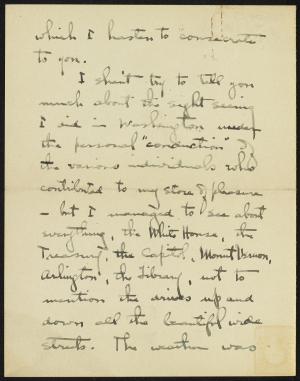 which I hasten to consecrate
to you.
I shan't try to tell you
much about the sight seeing
I did in Washington under
the personal "conduction" of
the various individuals who
contributed to my store of pleasure
- but I managed to see about
everything, the White House, the
Treasury, the Capitol, Mount Vernon,
Arlington, the Library, not to
mention the drives up and
down all the beautiful wide
streets. The weather was